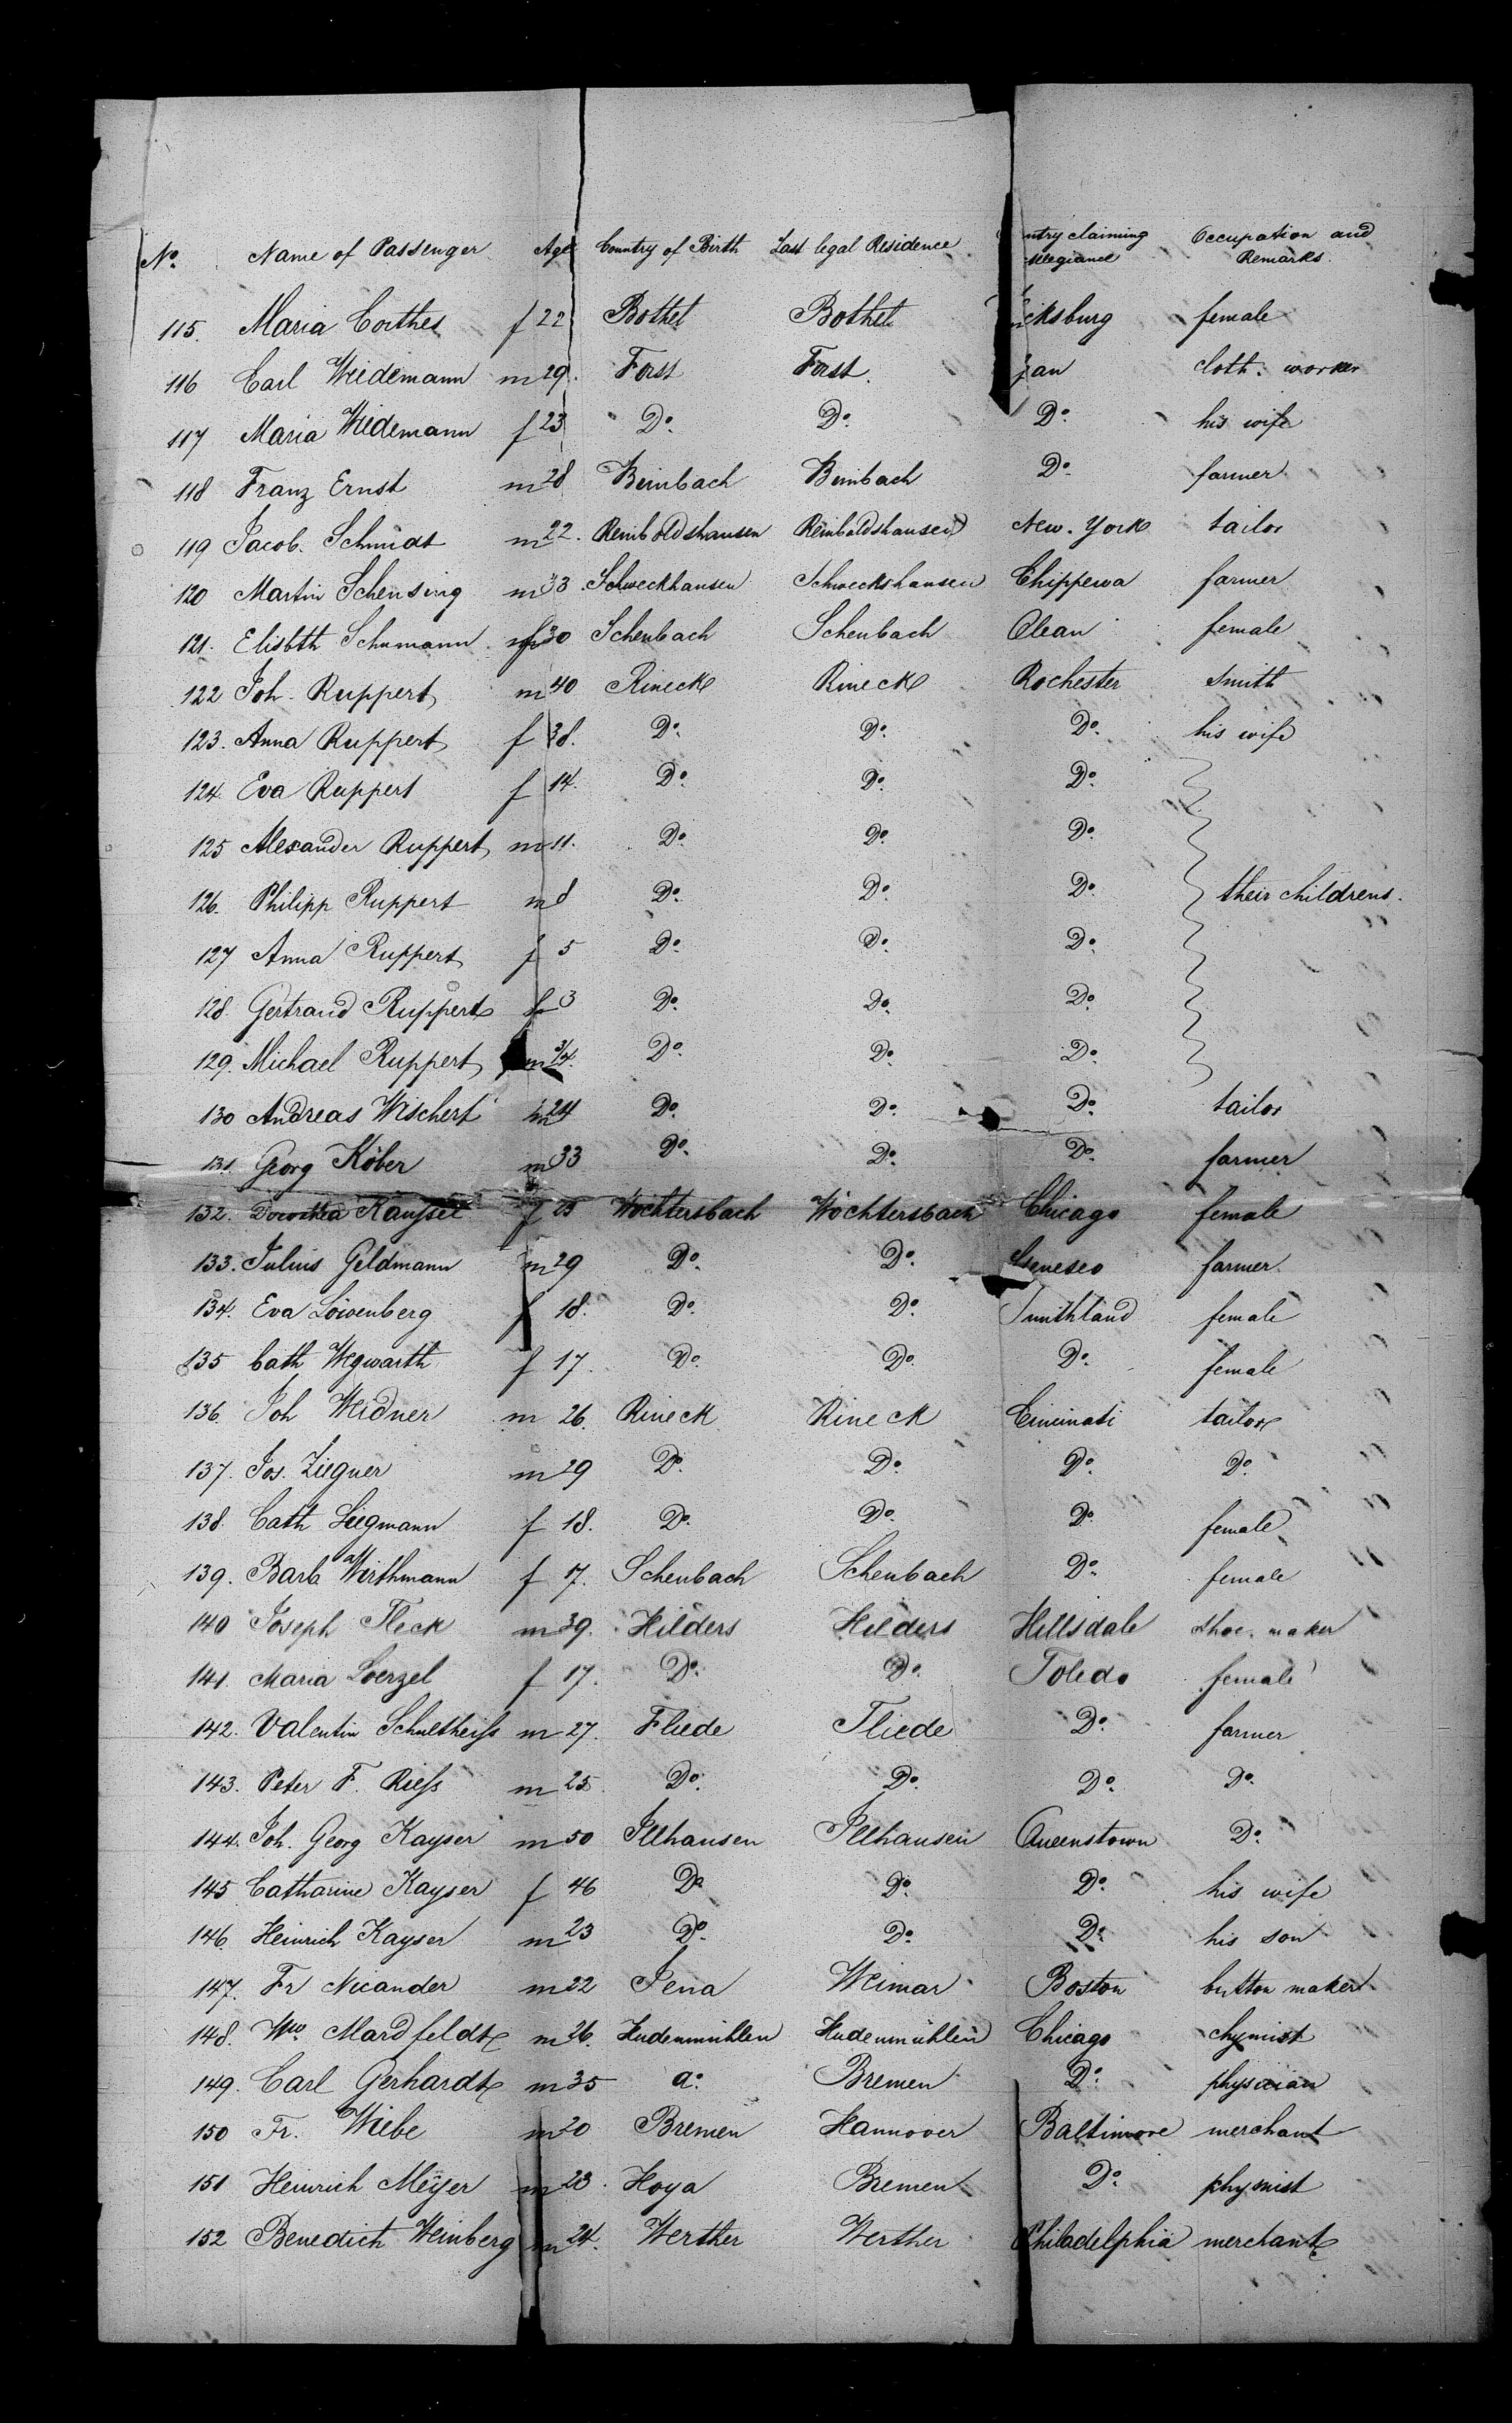 No. Name of Passenger Age Country of Birth Last legal Residence ntry claiming Allegiance Occupation and Remarks.
115. Maria Corthes f 22 Bothel Bothel cksburg female
116 Carl Wiedemann m 29. Forst Forst. cloth. worker
117 Maria Wiedemann f 23 Do. Do. Do. his wife
118 Franz Ernst m 28 Beinbach Beinbach Do. farmer
119 Jacob. Schmidt m 22. Remboldshausen Remboldshausen New. York tailor
120 Martin Schensing m 33. Schweckhausen Schweckshausen Chippewa farmer
121. Elisbth Schumann f 30 Schenbach Schenbach Olean female
122 Joh. Ruppert m 40 Rineck Rineck Rochester smith
123. Anna Ruppert f 38. Do. Do. Do. his wife
124. Eva Ruppert f 14. Do. Do. Do.
125 Alexander Ruppert m 11. Do. Do. Do.
126. Philipp Ruppert m 8 Do. Do. Do. their childrens.
127 Anna Ruppert f 5 Do. Do. Do.
128. Gertraud Ruppert f 3 Do. Do. Do.
129. Michael Ruppert m 3/4. Do. Do. Do.
130 Andreas Wischert m 24 Do. Do. Do. tailor
131. Georg Köber m 33 Do. Do. Do. farmer
132. Dorothea f 25 Wächtersbach Wächtersbach Chicago female
133. Julius Geldmann m 29 Do. Do. Geneseo farmer
134. Eva Löwenberg f 18. Do. Do. Smithland female
135 Cath Wegwarth f 17. Do. Do. Do. female
136. Joh Weidner m 26. Rineck Rineck Cincinati tailor
137. Jos. Ziegner m 29 Do. Do. Do. Do.
138. Cath Liegmann f 18. Do. Do. Do. female
139. Barb. Wirthmann f 17. Schenbach Schenbach Do. female
140 Joseph Fleck m 39. Hilders Hilders Hillsdale shoe. maker
141. Maria Loerzel f 17. Do. Do. Toledo female
142. Valentin Schultheiſs m 27. Fliede Fliede Do. farmer
143. Peter F. Rieſs m 25. Do. Do. Do. Do.
144. Joh. Georg Kayser m 50 Illhausen Illhausen Queenstown Do.
145 Catharine Kayser f 46 Do. Do. Do. his wife
146. Heinrich Kayser m 23 Do. Do. Do. his son
147. Fr Nicander m 22 Jena Weimar Boston button maker
148. Wm. Mardfeldt m 26. Hudenmühlen Hudenmühlen Chicago chymist
149. Carl Gerhardt m 35 a. Bremen Do. physician
150 Fr. Wiebe m 20 Bremen Hannover Baltimore merchant
151 Heinrich Meÿer m 23. Hoya Bremen Do. phymist
152 Benedict Weinberg m 24. Werther Werther Philadelphia merchant